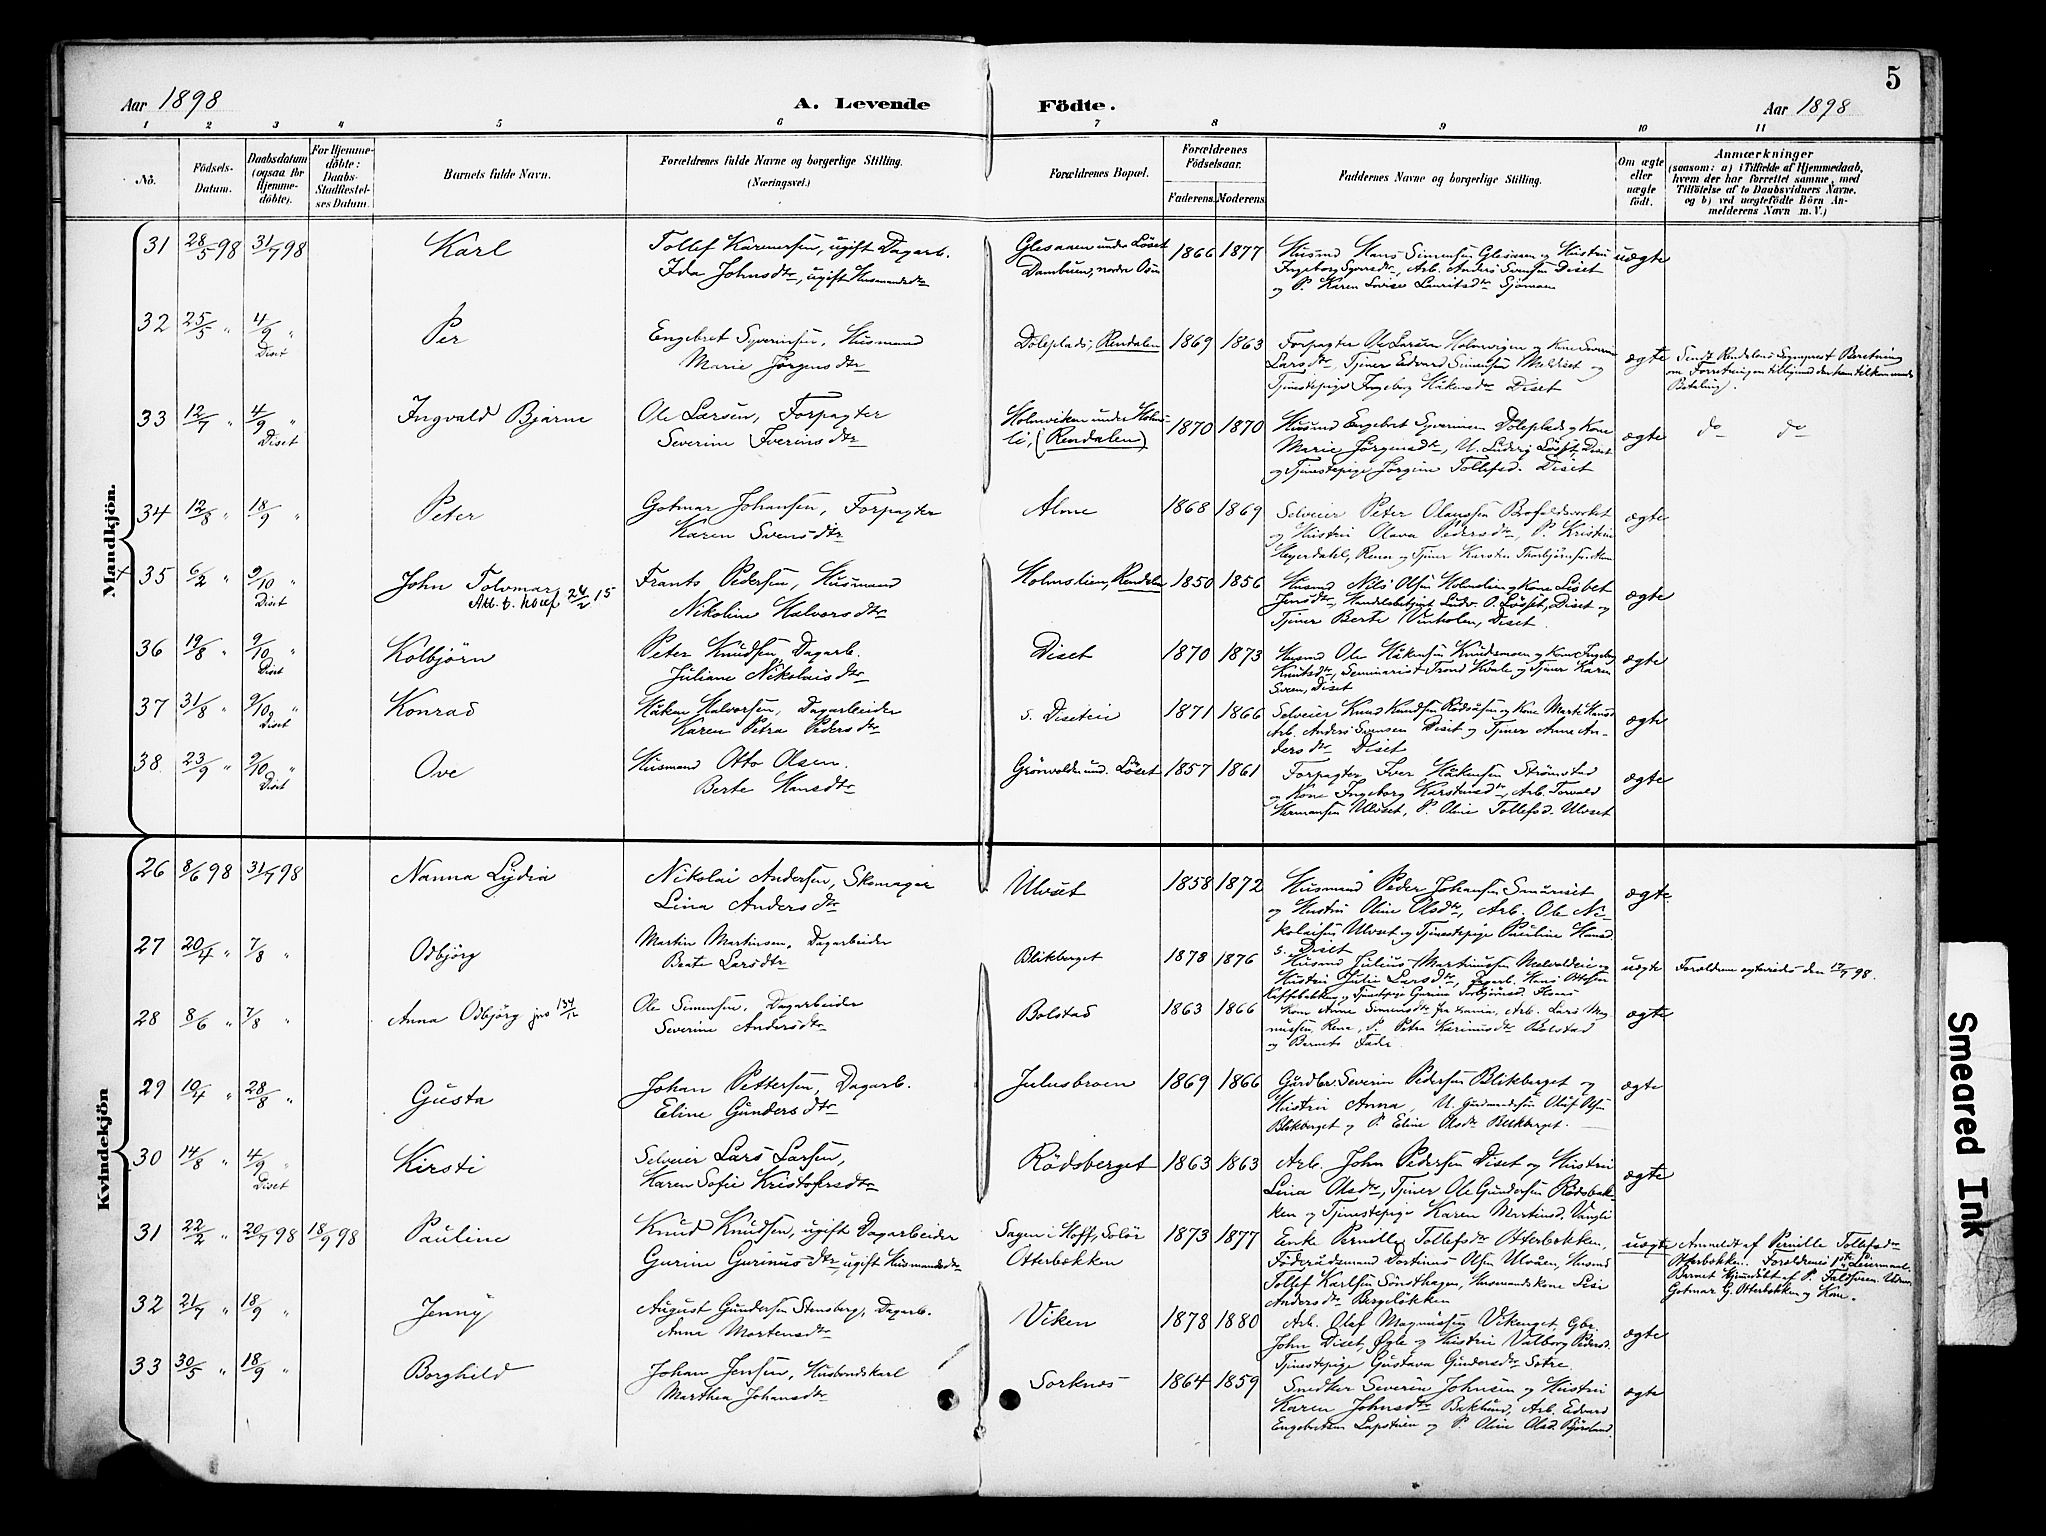 5
Aar 1898 A. Levende Födte. Aar 1898
1 2 3 4 5 6 7 8 9 10 11
No.
Födsels-Datum.
Daabsdatum (ogsaa for Hjemme-döbte).
For Hjemme-döbte: Daabs-Stadfæstel-ses Datum.
Barnets fulde Navn.
Forældrenes fulde Navne og borgerlige Stilling.
(Næringsvei.)
Forældrenes Bopæl.
Forældrenes Födselsaar.
Faderens. Moderens.
Faddernes Navne og borgerlige Stilling.
Om ægte eller uægte födt.
Anmærkninger
(saasom: a) i Tilfælde af Hjemmedaab, hvem der har forrettet samme, med Tilföielse af to Daabsvidners Navne, og b) ved uægtefödte Börn An-melderens Navn m. V.)
Mandkjön.
31 28/5 98 31/7 98 Karl
Tollef Karenersen, ugift Dagarb.
Ida Johnsdtr, ugift Husmandsdtr
Glesaaen under Löset
1866 1877
Husmd Hans Simensen Glesaaen og Hustru
Ingeborg Syversdtr, Arb. Anders Svensen Diset
og P. Karen Lovise Lauritsdtr
uægte
32 25/5 " 4/9 " Diset Per
Engebret Syverinsen, Husmand
Marie Jörgensdtr
Doleplads, Rendalen 1869 1863
Forpagter Ole Larsen Holmvigen og Kone Severine
Larsdtr, Tjener Edvard Simensen Diset og
Tjenestepige Ingeborg Håkensdtr Diset
ægte
Sendt Rendalens Sogneprest Beretning
om Forretningen tilligemed den ham tilkommende
Betaling.
33 12/7 " 4/9 " Diset Ingvald Bjarne
Ole Larsen, Forpagter
Severine Iverinsdtr
Holmviken under Holm-
li, (Rendalen) 1870 1870
Husmd Engebret Syverinsen Doleplads og Kone
Marie Jörgensdtr, U. Ludvig Löset, Diset
og Tjenestepige Jörgine Tollefsd. Diset
ægte do do
34 12/8 " 18/9 " Peter
Gotmar Johansen, Forpagter
Karen Svensdtr
Alme 1868 1869
Selveier Peter Olaussen
og Hustru Olava Pedersdtr, P. Kristine
Heyerdahl, Rena og Tjener Karsten Thorbjörnsen Alme
ægte
35 6/2 " 9/10 " Diset John Tolvmar
24/2 15
Frants Pedersen, Husmand
Nikoline Halvorsdtr
Holmslien, Rendalen 1850 1856
Husmd Nils Olsen Holmslien og Kone Lisbet
Jensdtr, Handelsbetjent Ludv. O. Lösset, Diset og
Tjener Berte Vinholen, Diset
ægte
36 19/8 " 9/10 " Diset Kolbjörn
Peter Knudsen Dagarb.
Juliane Nikolaisdtr
Diset 1870 1873
Husmd Ole Håkensen Knudsmoen og Kone Ingeborg
Knutsdtr, Seminarist Trond Kvale og Tjener Karen
Sveen, Diset
ægte
37 31/8 " 9/10 " Diset Konrad
Håken Halvorsen, Dagarbeider
Karen Petra Pedersdtr
s. Diseteie 1871 1866
Selveier Knud Knudsen Rödsåsen og Kone Marte Hansd
Arb. Anders Svensen Diset og Tjener Anne An-
dersdtr Diset
ægte
38 23/9 " 9/10 " Diset Ove
Husmand Otto Olsen.
Berte Hansdtr
Grönvolden und. Löset 1857 1861
Forpagter Iver Håkensen Strömstad
og Kone Ingeborg Karstensdtr, Arb. Torvald
Hermansen Ulvset, P. Oline Tollefsd. Ulvset
ægte
Kvindekjön
26 8/6 98 31/7 98 Nanna Lydia
Nikolai Andersen, Skomager
Lina Andersdtr
Ulvset 1858 1872
Husmand Peder Johansen Småriset
og Hustru Oline Olsdtr, Arb. Ole Ni-
kolaisen Ulvset og Tjenestepige Pauline Hansd.
s. Diset
ægte.
27 20/4 " 7/8 " Odbjörg
Martin Martinsen, Dagarbeider
Beate Larsdtr
Blikberget 1878 1876
Husmd Julius Martinussen og
Hustru Julie Larsdtr, Dagarb. Hans Ottesen
Kaffebakken og Tjenestepige Gurine Torbjörnsd.
uægte
Forældrene ægteviedes den 17/7 98.
28 8/6 " 7/8 " Anna Odbjörg jns 134/12
Ole Simensen, Dagarbeider
Severine Andersdtr
Bolstad 1863 1866
Kone Anne Simensdtr, Arb. Lars Mag-
nussen, Rena, P. Petra Karinusdtr Bolstad
og Barnets Fader.
ægte
29 19/4 " 28/8 " Gusta
Johan Pettersen, Dagarb.
Eline Gundersdtr
Julusbroen 1869 1866
Gårdbr. Severin Pedersen Blikberget og
Hustru Anna, U. Gårdmandssön Oluf Olsen
Blikberget og P. Eline Olsdtr Blikberget.
ægte
30 14/8 " 4/9 " Diset Kirsti
Selveier Lars Larsen,
Karen Sofie Kristofersdtr
Rödsberget 1863 1863
Arb. John Pedersen Diset og Hustru
Lina Olsdtr, Tjener Ole Gundersen Rödsbak-
ken og Tjenestepige Karen Martinsd. Vangli
ægte
31 22/2 " 20/7 98 18/9 98 Pauline
Knud Knudsen, ugift Dagarbeider
Gurine Gurinusdtr, ugift Husmandsdtr
Sagen i Hoff, Solör
Otterbekken
1873 1877
Enke Pernille Tollefsdtr Otterbekken,
Föderådsmand Dortinus Olsen Ulvåen, Husmd
Tollef Karlsen Sörsthagen, Husmandskone Lisi
Andersdtr Bergelökken
uægte
Anmeldt af Pernille Tollefsdtr
Otterbekken. Forældrenes 1ste Leiermaal.
Barnet Hjemdöbt af P.
Gotmar G. Otterbekken og Kone.
32 21/7 " 18/9 " Jenny
August Gundersen Stensberg, Dagarb.
Anne Mortensdtr
Viken 1878 1880
Arb. Olaf Magnussen Vikenget, Gbr.
John Diset, Ögle og Hustru Valborg Pedersd.
Tjenestepige Gustava Gundersdtr Setre.
ægte
33 30/5 " 18/9 " Borghild
Johan Jensen, Husbondskarl
Marthea Johansdtr
Sorknes 1864 1859
Snedker Severin Johnsen og Hustru
Karen Johnsdtr Baklund, Arb. Edvard
Engebretsen Lapstuen og P. Oline Olsd. Björsland.
ægte
Smeared Ink